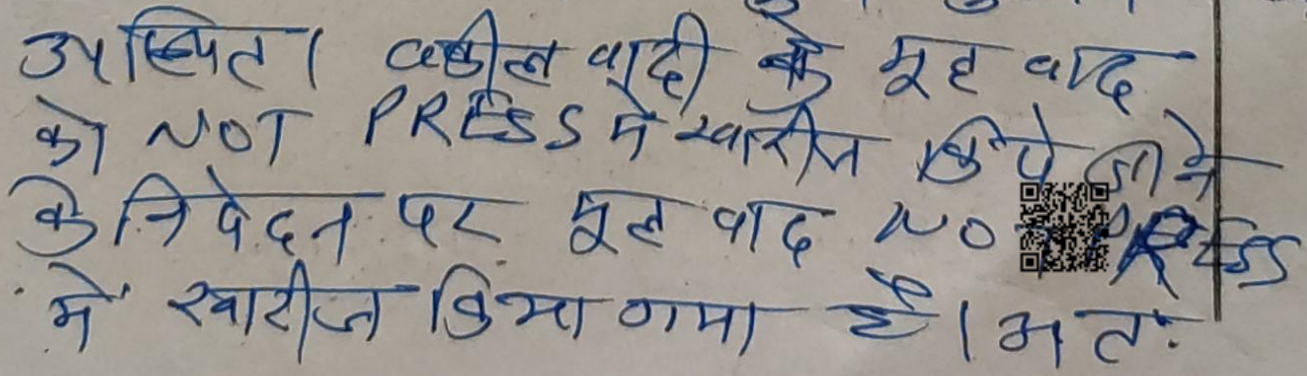 उपस्थित। वकील वादी के मूल वाद
को NOT PRESS में खारीज किये जाने
के निवेदन पर मूल वाद NOT PRESS
में खारीज किया गया है। अतः